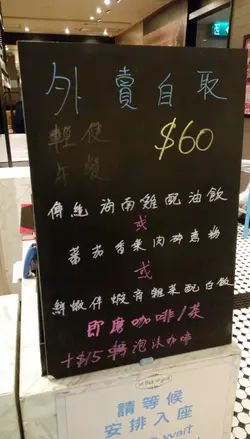 外賣自取
輕便
午餐
$60
傳統海南雞配油飯
或
蕃茄香葉肉碎意粉
或
鮮魷伴蝦膏雜菜配白飯
即磨咖啡/茶
+$15轉泡沫咖啡
請等候
安排入座